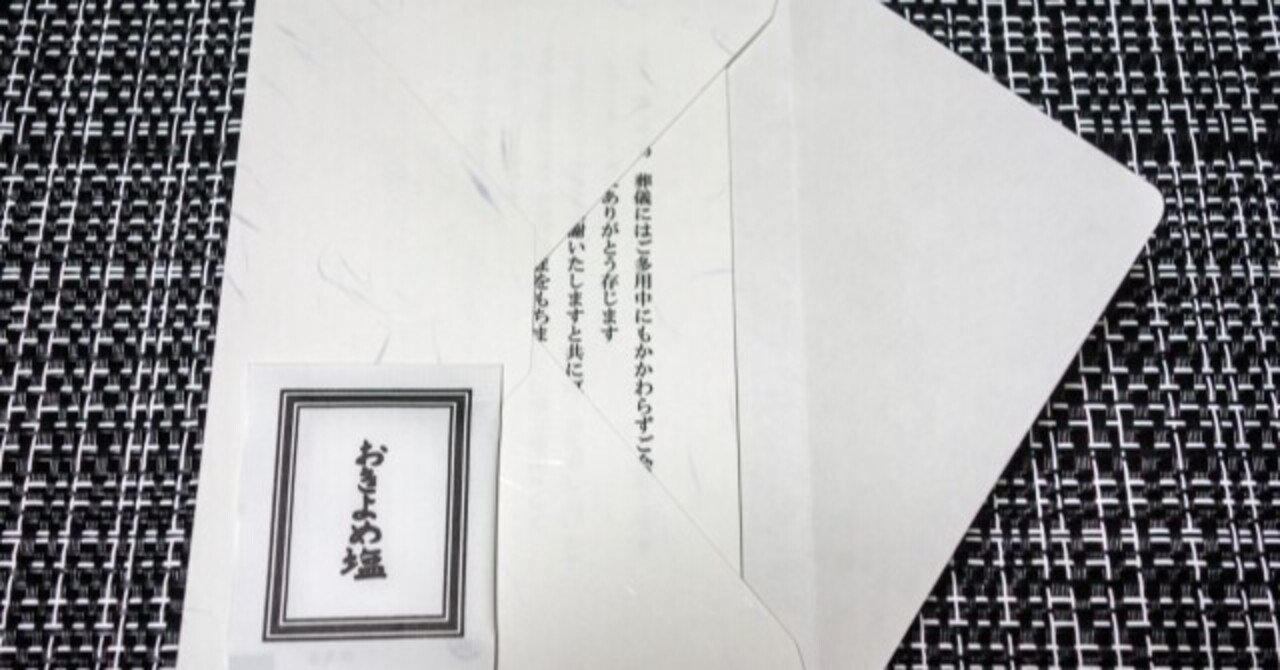 葬儀にはご多用中にもかかわらずご会
ありがとう存じます
謝いたしますと共に
をもちま
おきよめ塩